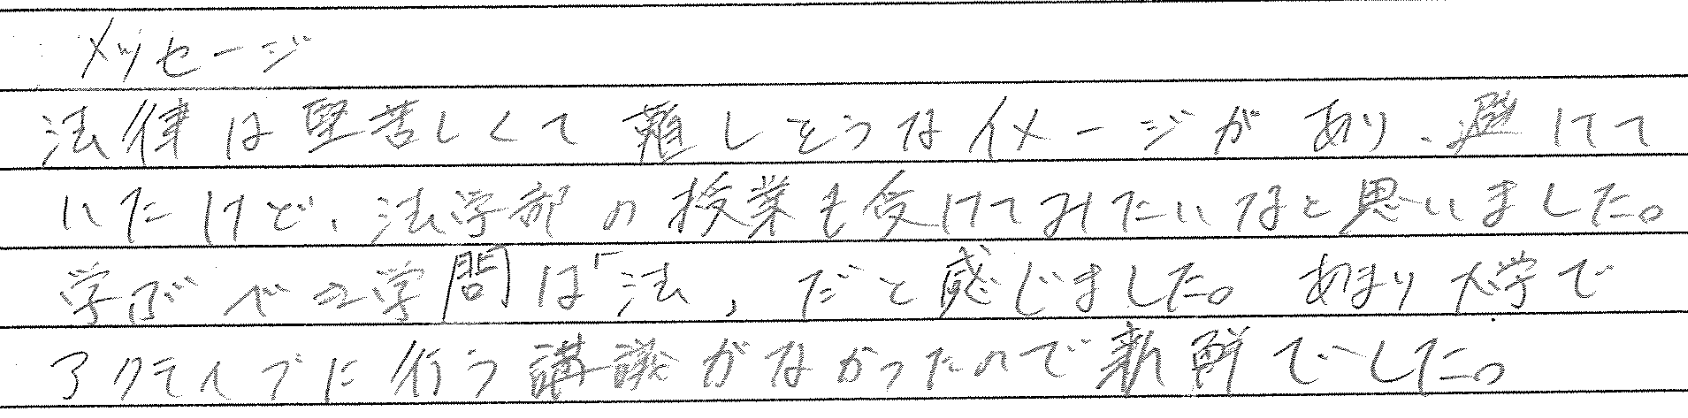 メッセージ
法律は堅苦しくて難しそうなイメージがあり、避けて
いたけど、法学部の授業も受けてみたいなと思いました。
学ぶべき学問は「法」だと感じました。あまり大学で
アクティブに行う講議がなかったので新鮮でした。